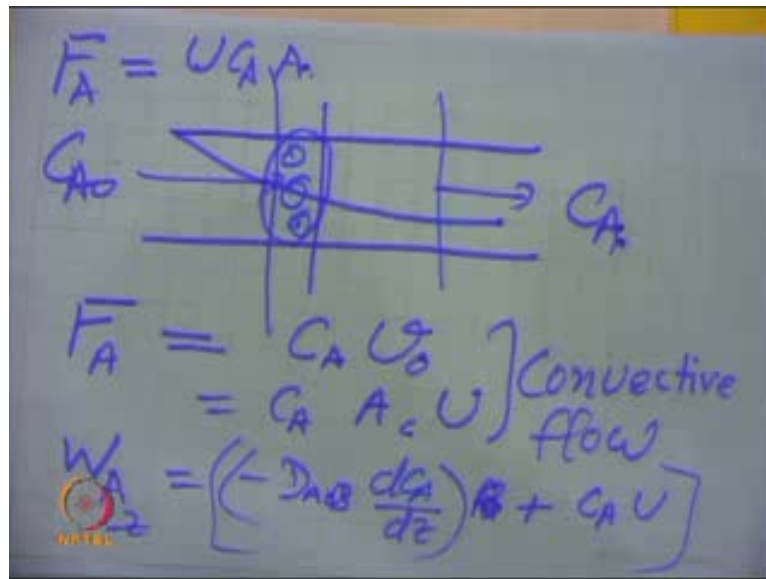 F̅_A = U C_A A_c
C_A0
C_A
F̅_A = C_A υ_0
= C_A A_c U ] Convective flow
W_Az = [(-D_AB dC_A/dz) + C_A U]
NPTEL